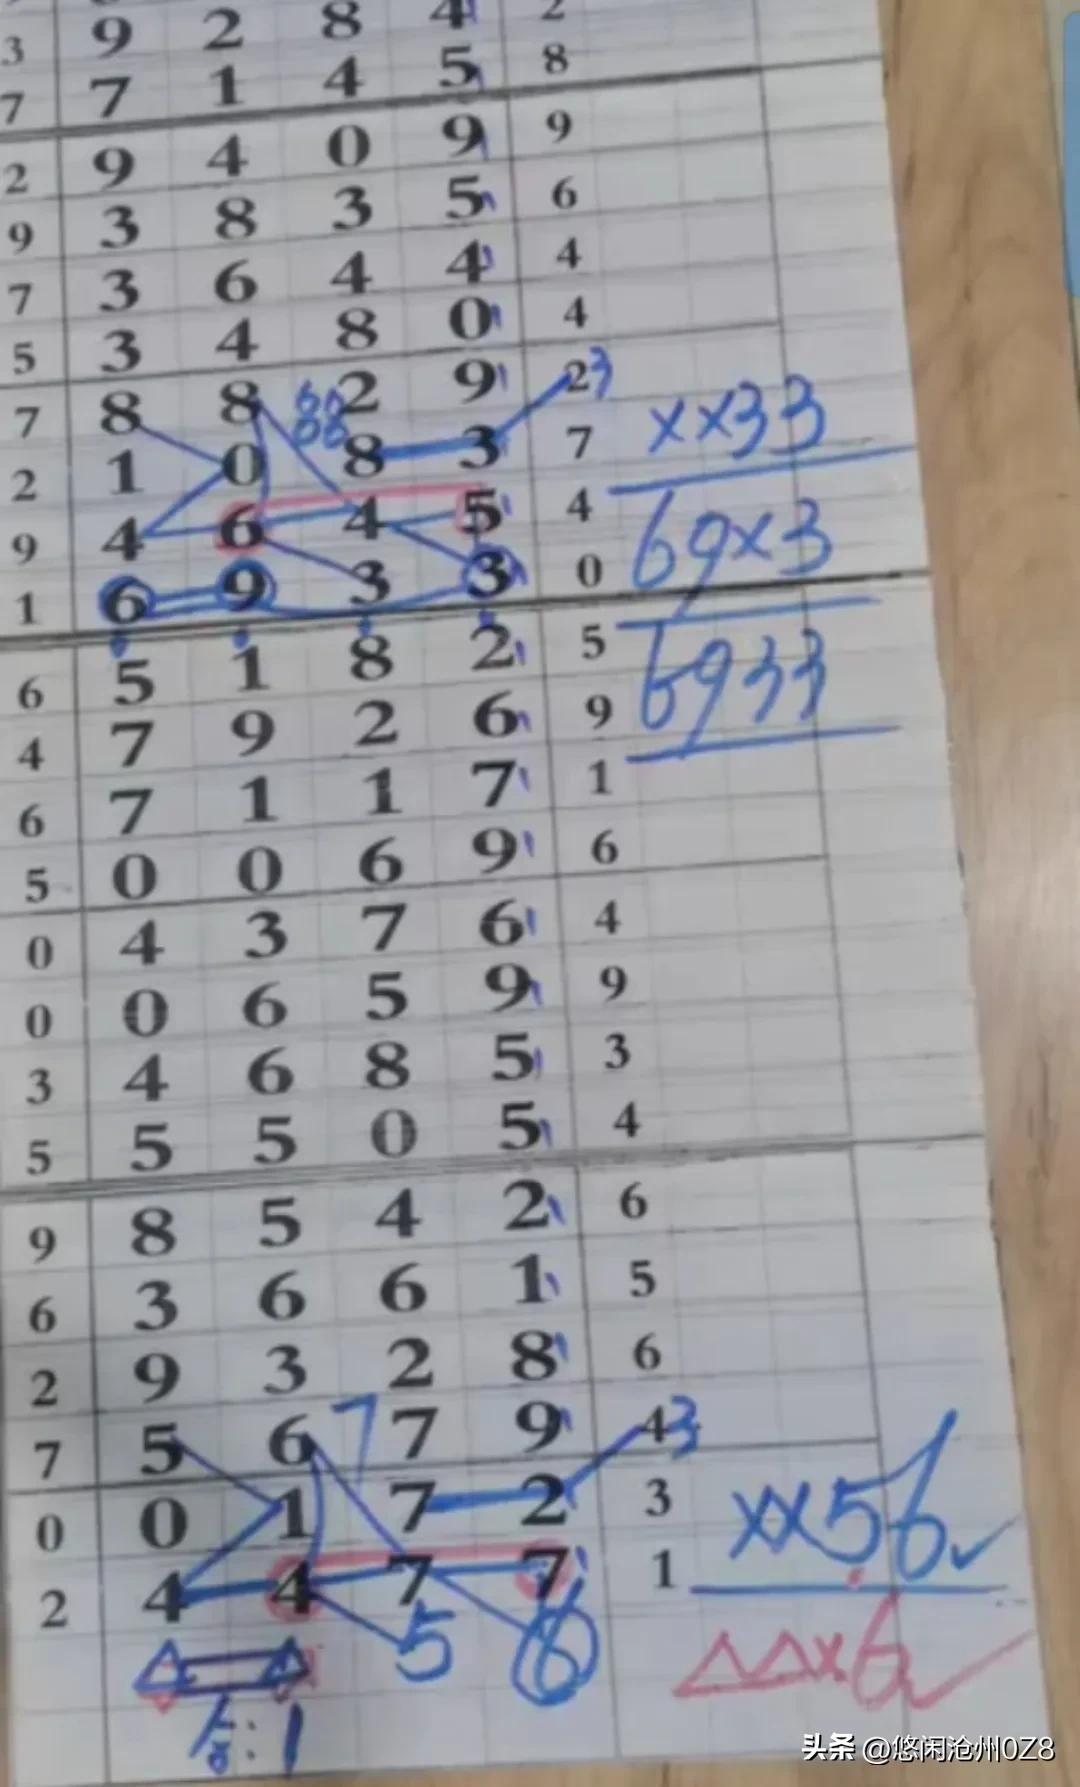 3 9 2 8 4 2
7 7 1 4 5 8
2 9 4 0 9 9
9 3 8 3 5 6
7 3 6 4 4 4
5 3 4 8 0 4
7 8 8 2 9 2 3
2 1 0 8 3 7 ××33
9 4 6 4 5 4
1 6 9 3 3 0 69×3
6 5 1 8 2 5 6933
4 7 9 2 6 9
6 7 1 1 7 1
5 0 0 6 9 6
0 4 3 7 6 4
0 0 6 5 9 9
3 4 6 8 5 3
5 5 5 0 5 4
9 8 5 4 2 6
6 3 6 6 1 5
2 9 3 2 8 6
7 5 6 7 7 9 4 3
0 0 1 7 2 3 ××56
2 4 4 7 7 1
5 6 △△×6
合:1
头条 @悠闲沧州0Z8